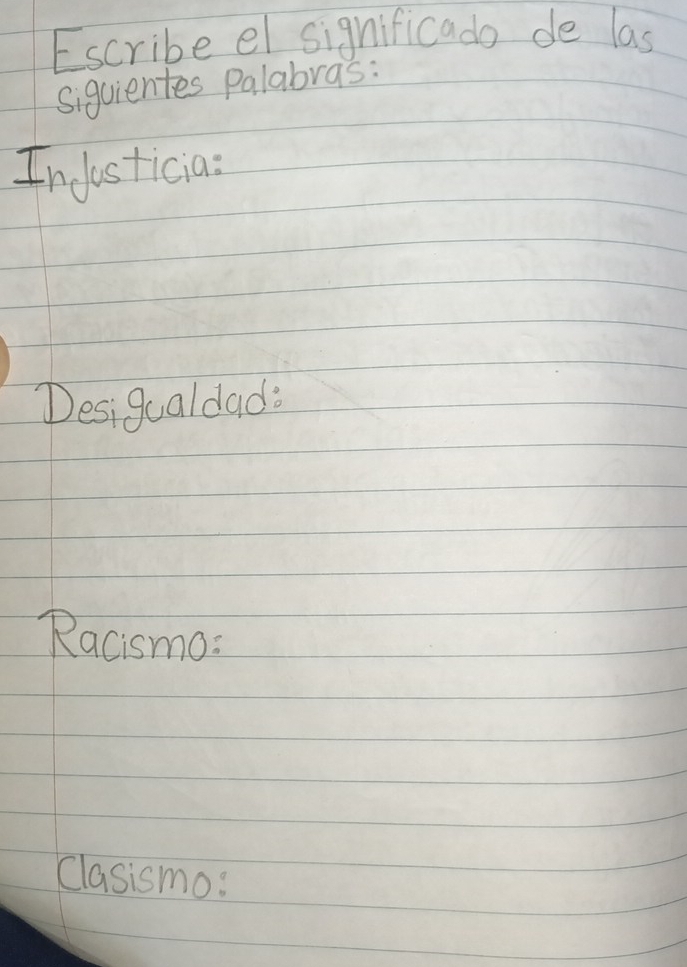 Escribe el significado de las
siguientes palabras:
Injusticia:
Desigualdad:
Racismo:
Clasismo: